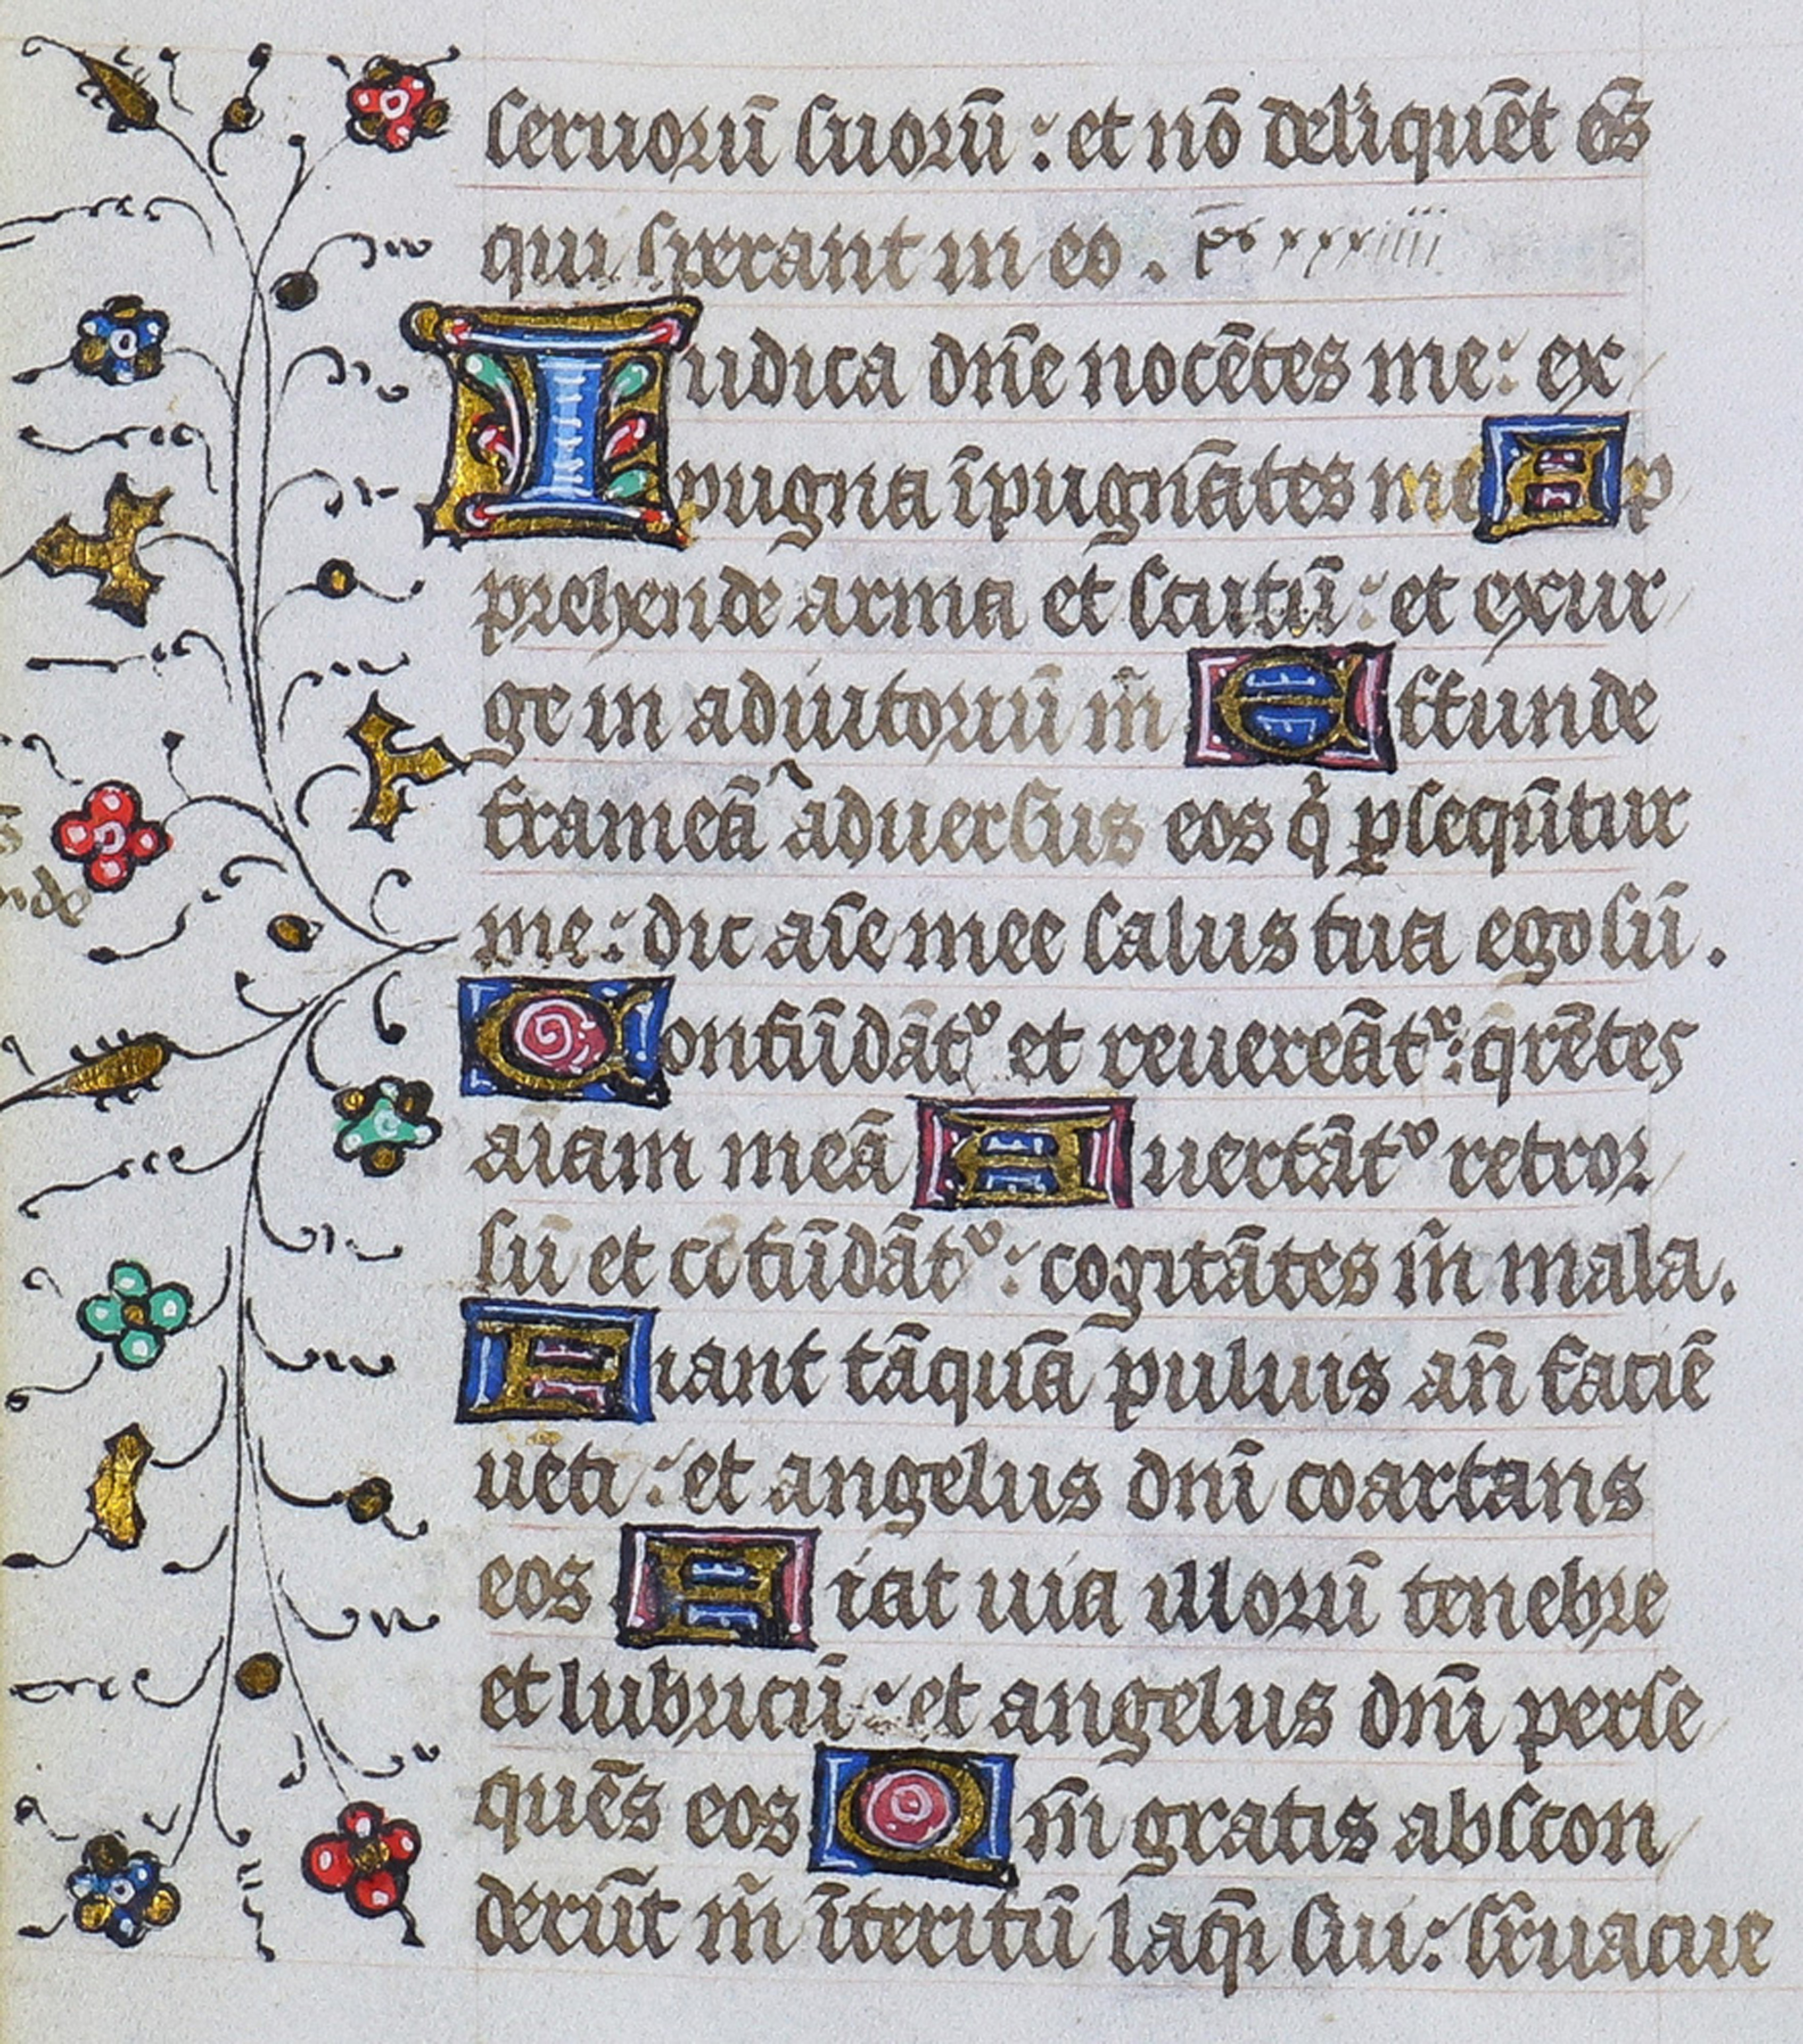 seruorū suorū : et nō deliquēt om̄s
qui sperant in eo . ps xxxiiii
Iudica dn̄e nocētes me : ex
pugna īpugnātes me Ap
prehende arma et scutū : et exur
ge in adiutoriū m̄ Effunde
frameā aduersus eos q̇ ꝑsequūtur
me : dic aīe mee salus tua ego sū .
Confūdātᵘ et reuereātʳ : qrētes
aīam meā Auertātᵘ retror
sū et cōfūdātᵘ : cogitātes m̄ mala .
Fiant tāquā puluis an̄ faciē
uēti : et angelus dnī coartans
eos Fiat uia illorū tenebre
et lubricū : et angelus dnī perse
quēs eos Qm̄ gratis abscon
derūt m̄ īteritū laq̄i sui : sr̄uacue